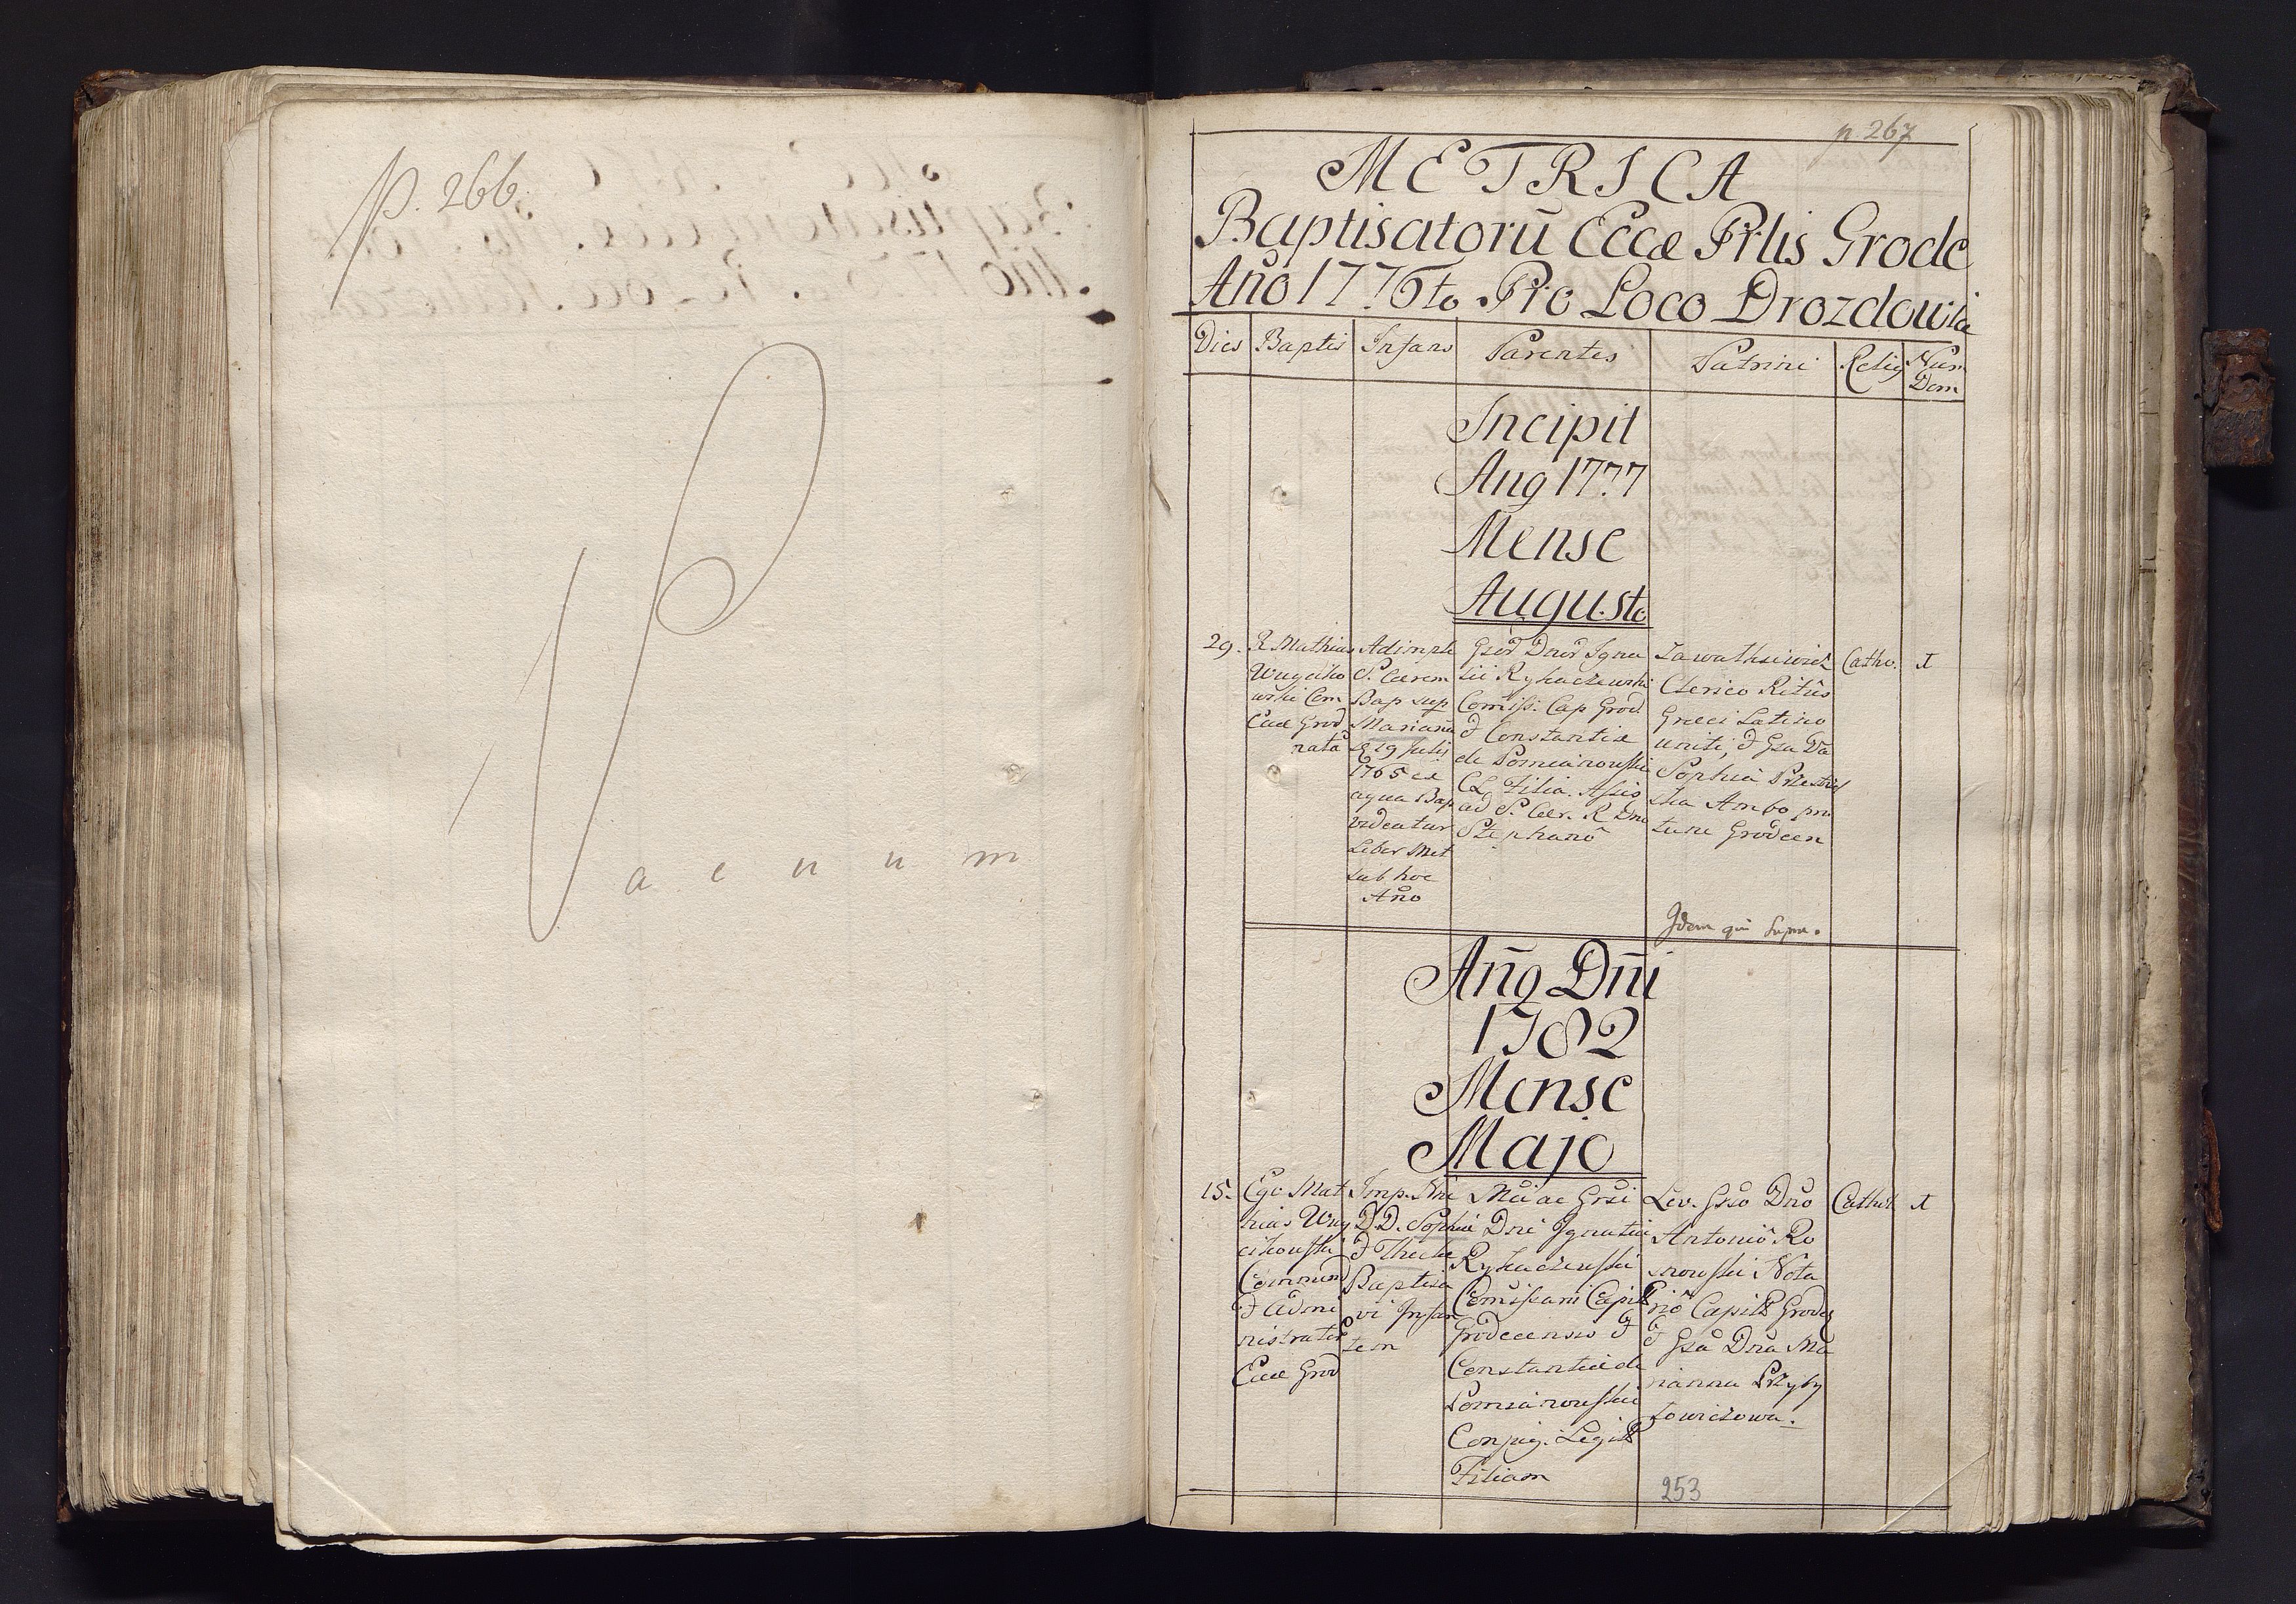 p. 266.
Vacuum
p. 267
METRICA
Baptisatorū Eccæ Prlis Grode
Año 1776to Pro Loco Drozdowia
Dies Baptis Infans Parentes Patrini Relig Num Dom
Incipit
Ang 1777
Mense
Augusto
29.
R Mathias
Wuyciko
wski Com
Eccæ Grod
Adimple
S. Cerem
Bap sup
Marianā
natā
die 19 Julij
1765 ex
aqua Bap
videatur
Liber Met
sub hoc
Año
Gsor Dnor Igna
tii Rychaczewski
Comiss. Cap Grod
& Constantiæ
de Pomianowski
CL Filia. Assis
ad S. Cer. R Dno
Stephano
Zawathkiewicz
Clerico Ritûs
Græci Latino
uniti, & Gsa Da
Sophia Przestrzel
ska Ambo pro
tunc Grodecen
Cathо.
1
Idem qui supra.
Año Dñi
1782
Mense
Majo
15.
Ego Mat
hias Wuy
cikowski
Commend
& Admi
nistrator
Eccæ Grod
Imp. Nni
D.D. Sophiæ
& Theclæ
Baptisa
vi Infan
tem
Mci ac Grsi
Dni Ignatii
Rychaczewski
Comissarii Capit
Grodecensis &
Constantiæ de
Pomianowskie
Conjug. Legit
Filiam
Lev. Gso Dno
Antonio Ro
snowski Nota
rio Capit Grodec
& Gsa Dna Ma
rianna Przyby
towiczowa.
Cathol
1
253